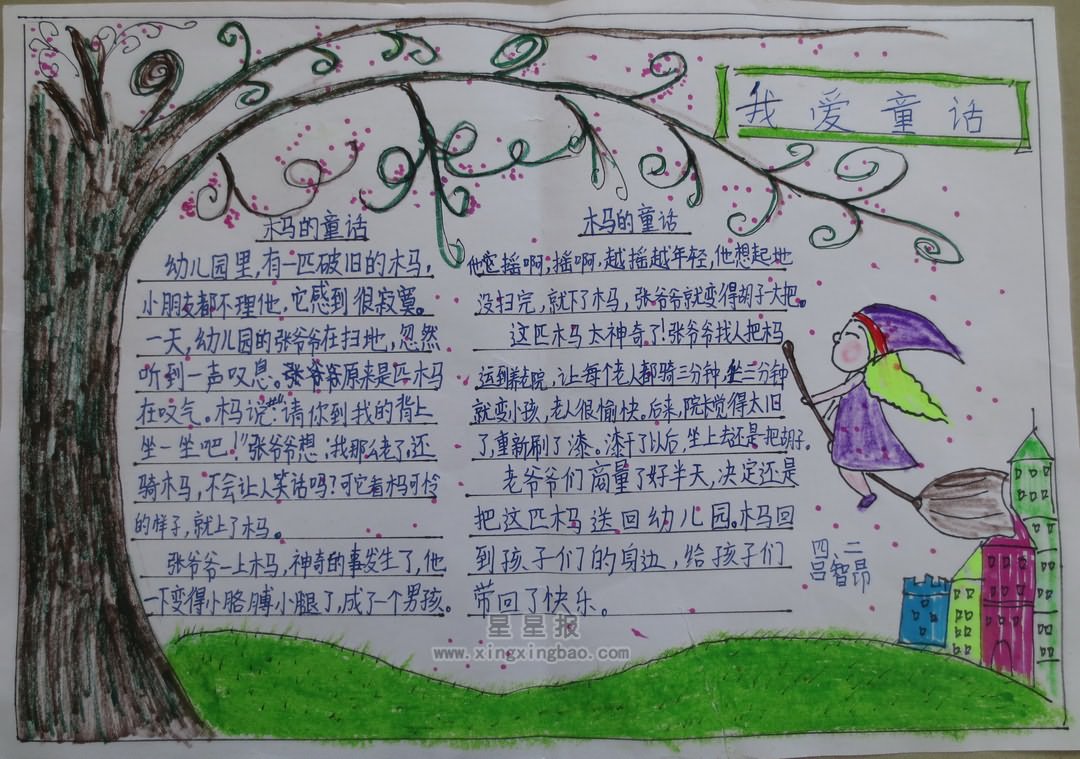 我爱童话
木马的童话
幼儿园里,有一匹破旧的木马,
小朋友都不理他,它感到很寂寞。
一天,幼儿园的张爷爷在扫地,忽然
听到一声叹息。张爷爷原来是匹木马
在叹气。木马说:“请你到我的背上
坐一坐吧!”张爷爷想:我那么老了,还
骑木马,不会让人笑话吗?可它看木马可怜
的样子,就上了木马。
张爷爷一上木马,神奇的事发生了,他
一下变得小胳膊小腿了,成了一个男孩。
木马的童话
他摇啊,摇啊,越摇越年轻,他想起地
没扫完,就下了木马,张爷爷就变得胡子大把。
这匹木马太神奇了!张爷爷找人把木马
运到养老院,让每个老人都骑三分钟,坐三分钟
就变小孩,老人很愉快。后来,院长觉得太旧
了,重新刷了漆。漆干了以后,坐上去还是一把胡子.
老爷爷们商量了好半天,决定还是
把这匹木马送回幼儿园。木马回
到孩子们的身边,给孩子们
带回了快乐。
四、二
吕智昂
星星报
www.xingxingbao.com